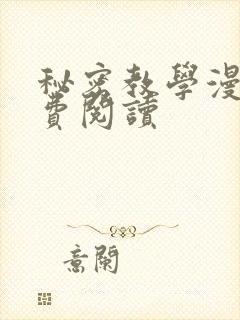 秘密教學漫
費閱讀
意闌